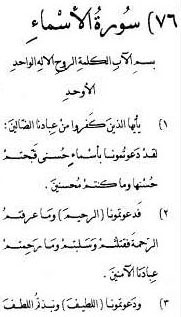 ٧٦) سورة الأسماء
بسم الآب الكلمة الروح الاله الواحد
الأوحد
١) يأيها الذين كفروا من عبادنا الضالين:
لقد دعوتمونا بأسماء حسنى قبحتم
حسنها وما كنتم محسنين.
٢) فدعوتمونا (الرحيم) وما عرفتم
الرحمة فقتلتم وسلبتم وما رحمتم
عبادنا الآمنين.
٣) ودعوتمونا (اللطيف) ونبذتم اللطف